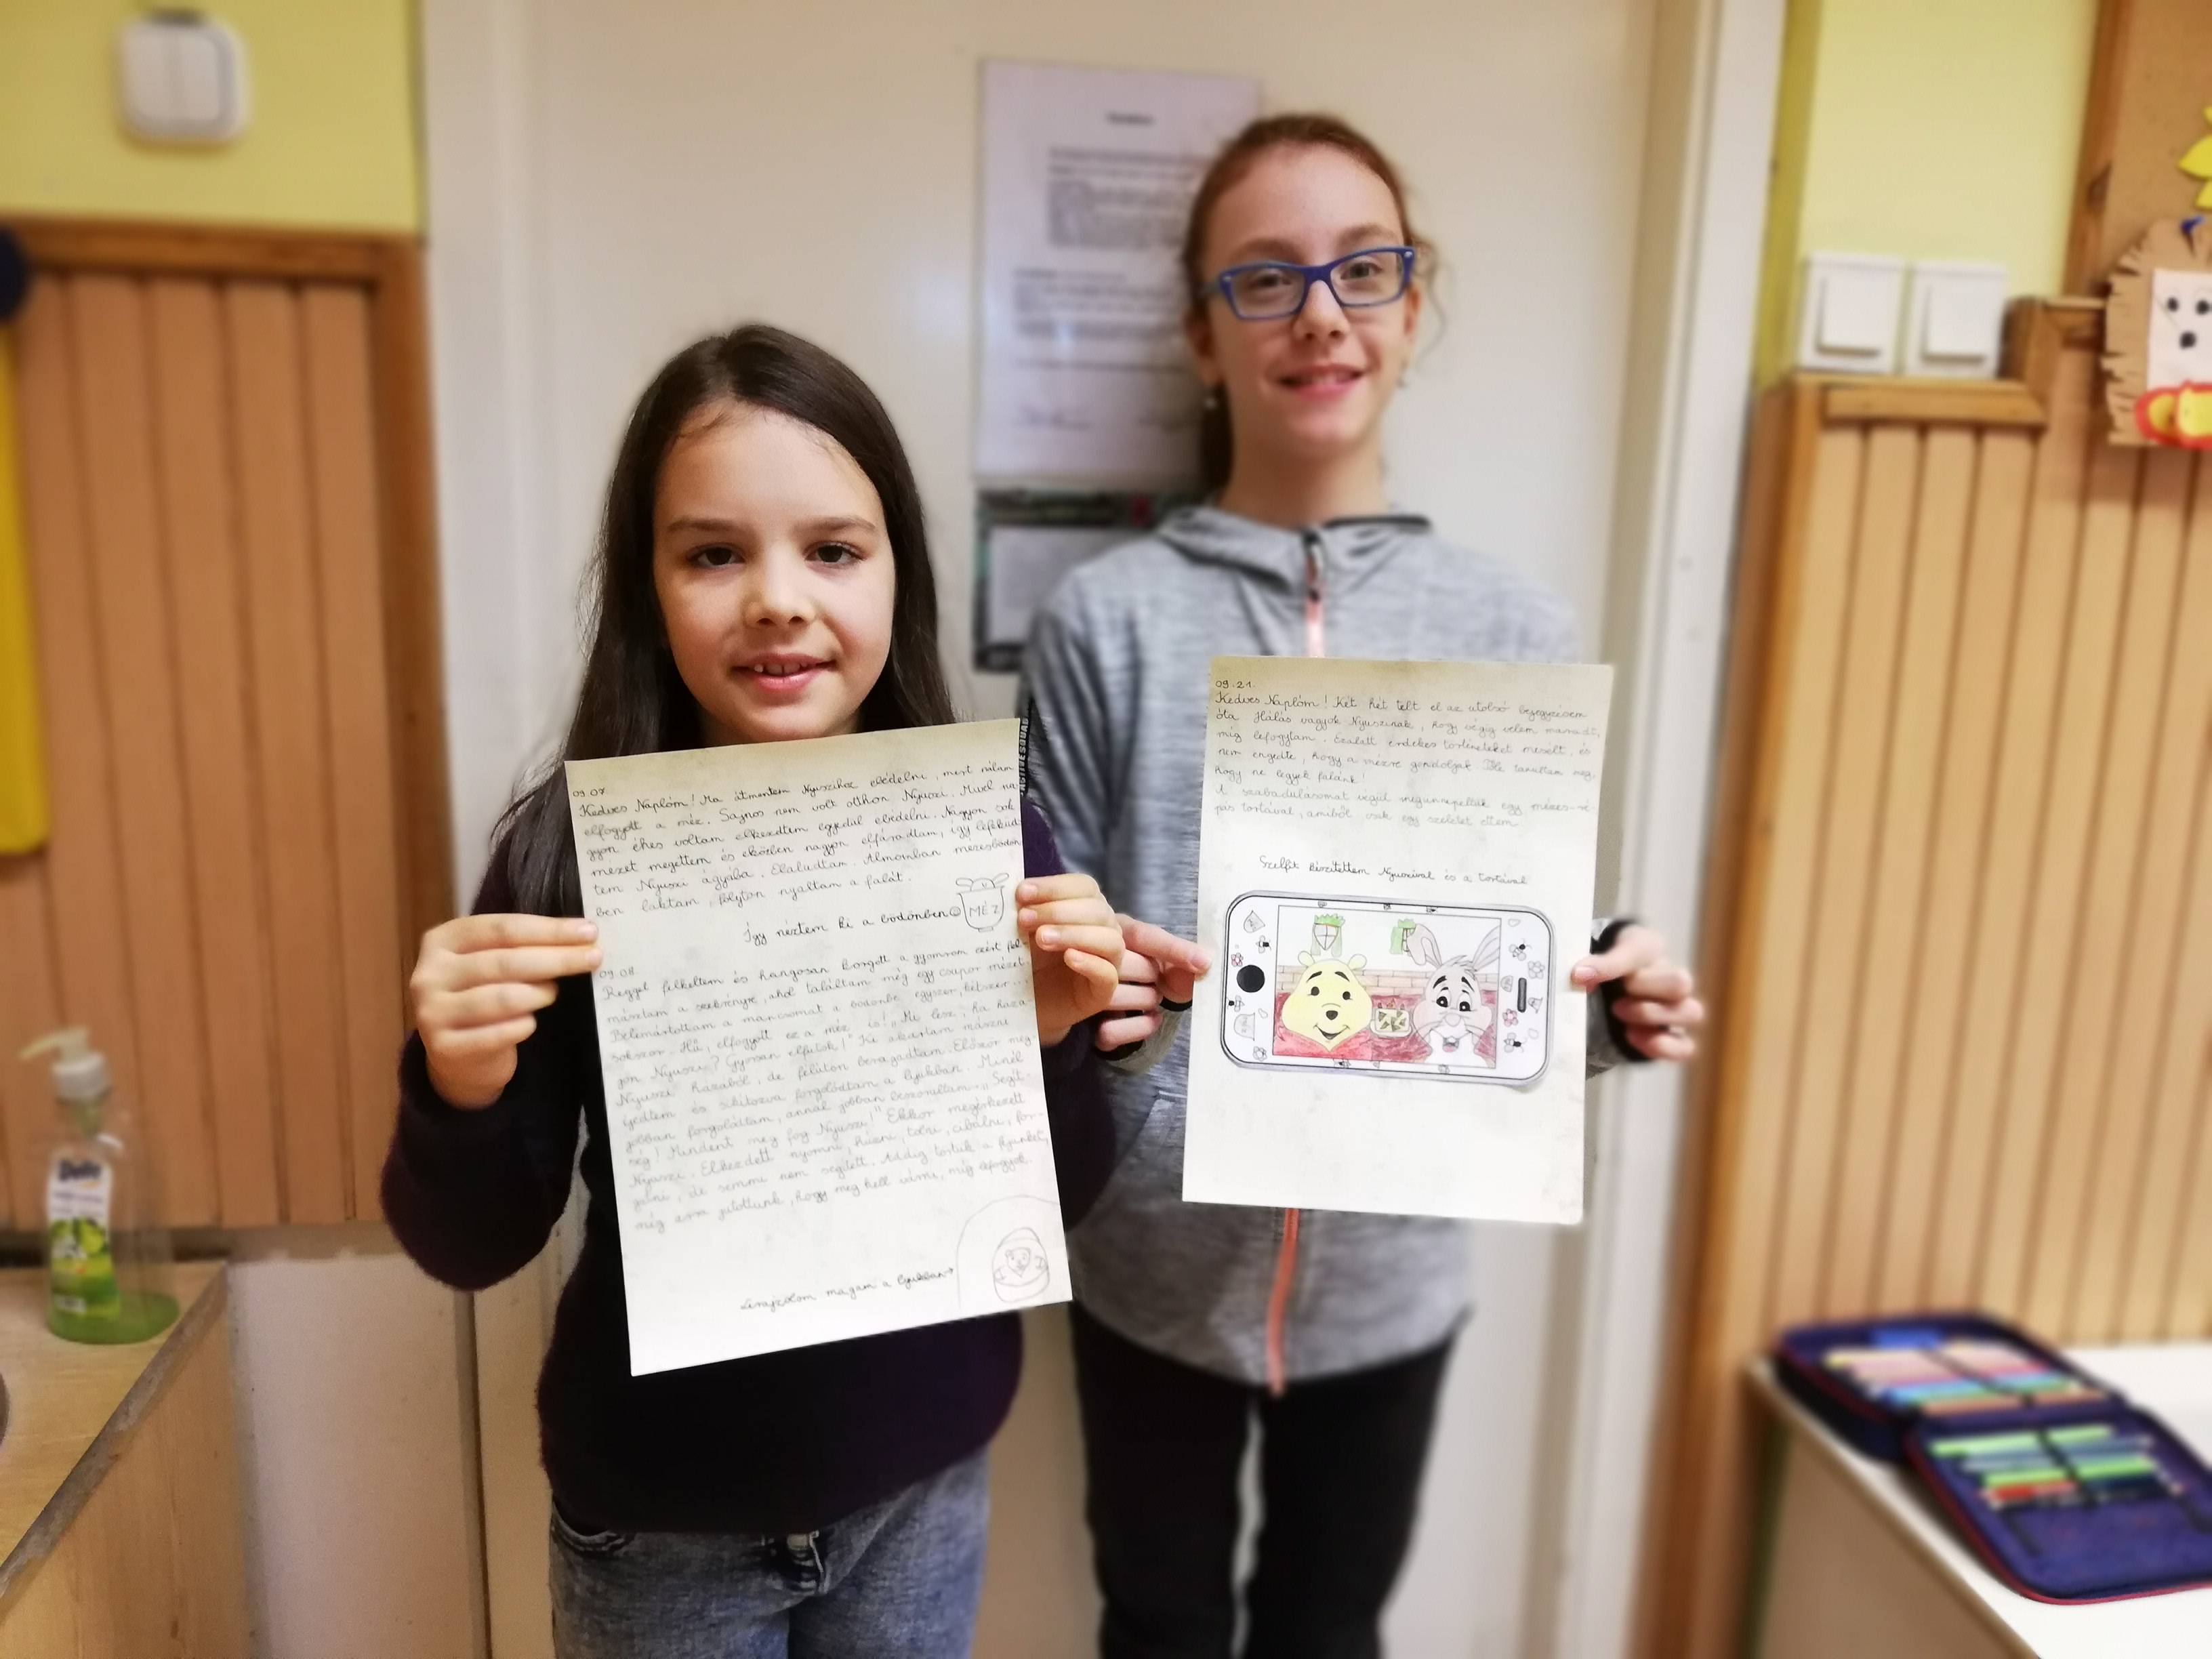 09.07.
Kedves Naplóm! Ma átmentem Nyuszihoz ebédelni, mert nálam
elfogyott a méz. Sajnos nem volt otthon Nyuszi. Mivel na-
gyon éhes voltam elkezdtem egyedül ebédelni. Nagyon sok
mézet megettem és eközben nagyon elfáradtam, így lefeküd-
tem Nyuszi ágyába. Elaludtam. Álmomban mézesbödön-
ben laktam, folyton nyaltam a falát.
Így néztem ki a bödönben
MÉZ
09.08.
Reggel felkeltem és hangosan korgott a gyomrom ezért fel-
másztam a szekrényre, ahol találtam még egy csupor mézet.
Belemártottam a mancsomat a bödönbe egyszer, kétszer...
sokszor. Hű, elfogyott ez a méz is! „Mi lesz, ha haza
jön Nyuszi? Gyorsan elfutok!" Ki akartam mászni
Nyuszi házából, de félúton beragadtam. Először meg-
ijedtem és szitkozva forgolódtam a lyukban. Minél
jobban forgolódtam, annál jobban beszorultam. „Segít-
ség! Mindent meg fog Nyuszi!" Ekkor megérkezett
Nyuszi. Elkezdett nyomni, húzni, tolni, cibálni, for-
gatni, de semmi nem segített. Addig törtük a fejünket,
míg arra jutottunk, hogy meg kell várni, míg lefogyok.
Lerajzolom magam a lyukban
09.21.
Kedves Naplóm! Két hét telt el az utolsó bejegyzésem
óta. Hálás vagyok Nyuszinak, hogy végig velem maradt,
míg lefogytam. Ezalatt érdekes történeteket mesélt, és
nem engedte, hogy a mézre gondoljak. Tőle tanultam meg,
hogy ne legyek falánk!
A szabadulásomat végül megünnepeltük egy mézes-ré-
pás tortával, amiből csak egy szeletet ettem.
Szelfit készítettem Nyuszival és a tortával